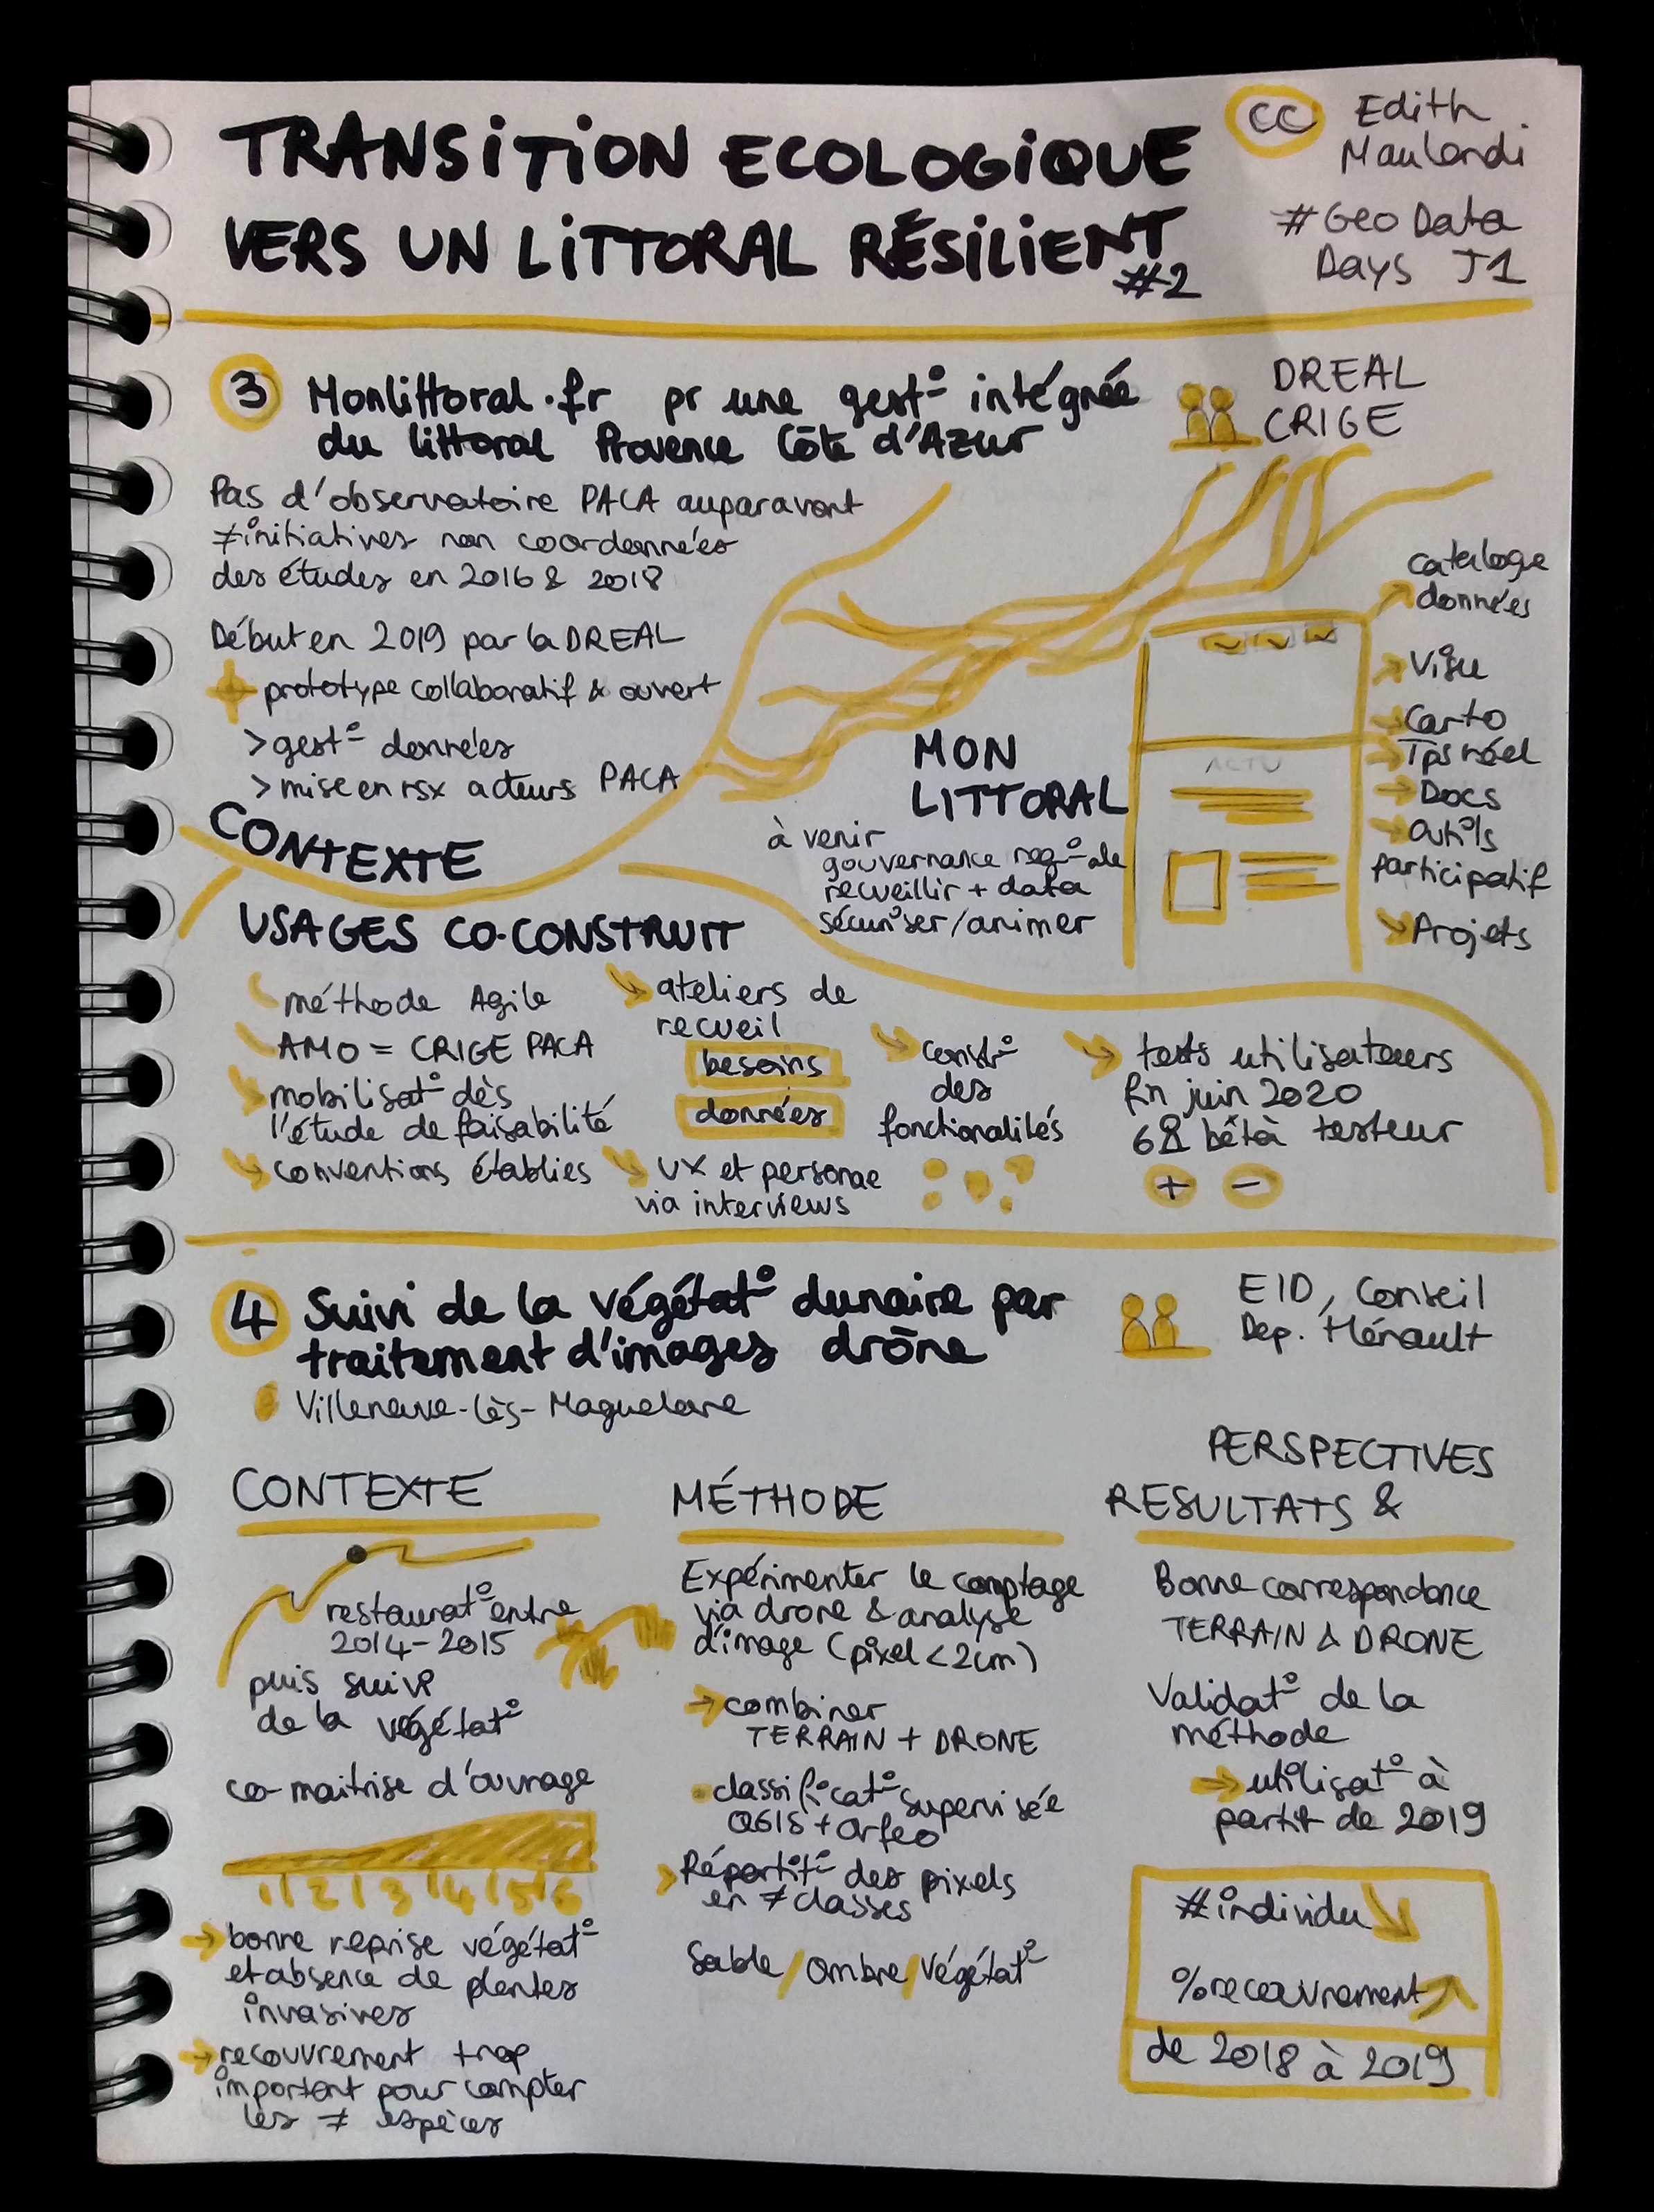 TRANSITION ECOLOGIQUE
VERS UN LITTORAL RÉSILIENT
#2
CC Edith
Maulandi
#GeoData
Days J1
3 Monlittoral.fr pr une gest° intégrée
du littoral Provence Côte d'Azur
DREAL
CRIGE
Pas d'observatoire PACA auparavant
≠ initiatives non coordonnées
des études en 2016 & 2018
Début en 2019 par la DREAL
prototype collaboratif & ouvert
> gest° données
> mise en rsx acteurs PACA
CONTEXTE
MON
LITTORAL
à venir
gouvernance reg°ale
recueillir + data
sécuriser/animer
ACTU
catalogue
données
Visu
Carto
Tps réel
Docs
Outils
participatif
Projets
USAGES CO-CONSTRUIT
méthode Agile
AMO = CRIGE PACA
mobilisat° dès
l'étude de faisabilité
conventions établies
ateliers de
recueil
besoins
données
UX et personae
via interviews
constr°
des
fonctionalités
tests utilisateurs
fin juin 2020
68 bêta testeur
+ -
4 Suivi de la végétat° dunaire par
traitement d'images drône
EID, Conseil
Dep. Hérault
Villeneuve-lès-Maguelone
CONTEXTE
restaurat° entre
2014-2015
puis suivi
de la végétat°
co-maitrise d'ouvrage
1 | 2 | 3 | 4 | 5 | 6
bonne reprise végétat°
et absence de plantes
invasives
recouvrement trop
important pour compter
les ≠ espèces
MÉTHODE
Expérimenter le comptage
via drone & analyse
d'image (pixel < 2cm)
combiner
TERRAIN + DRONE
classificat° supervisée
QGIS + Orfeo
Répartit° des pixels
en ≠ classes
Sable / Ombre / Végétat°
PERSPECTIVES
RESULTATS &
Bonne correspondance
TERRAIN & DRONE
Validat° de la
méthode
utilisat° à
partir de 2019
#individu
% recouvrement
de 2018 à 2019